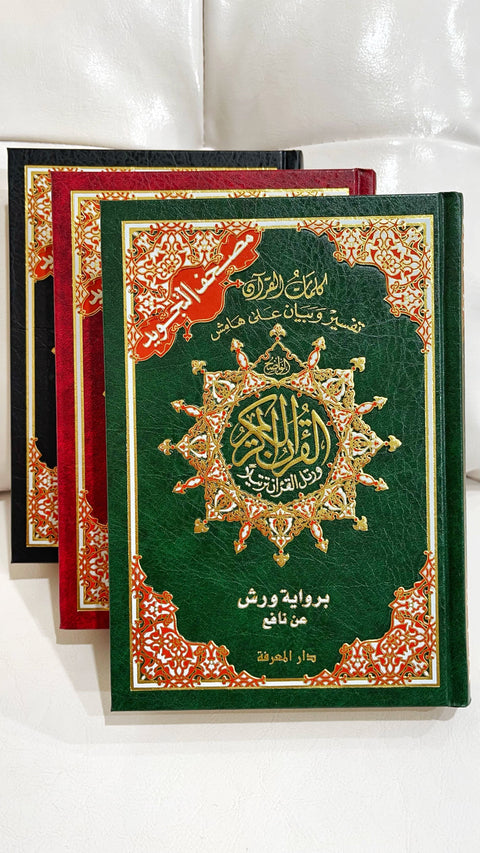 مصحف التجويد
كلمات القرآن
تفسير وبيان على هامش
القرآن الكريم
ورتل القرآن ترتيلا
برواية ورش
عن نافع
دار المعرفة